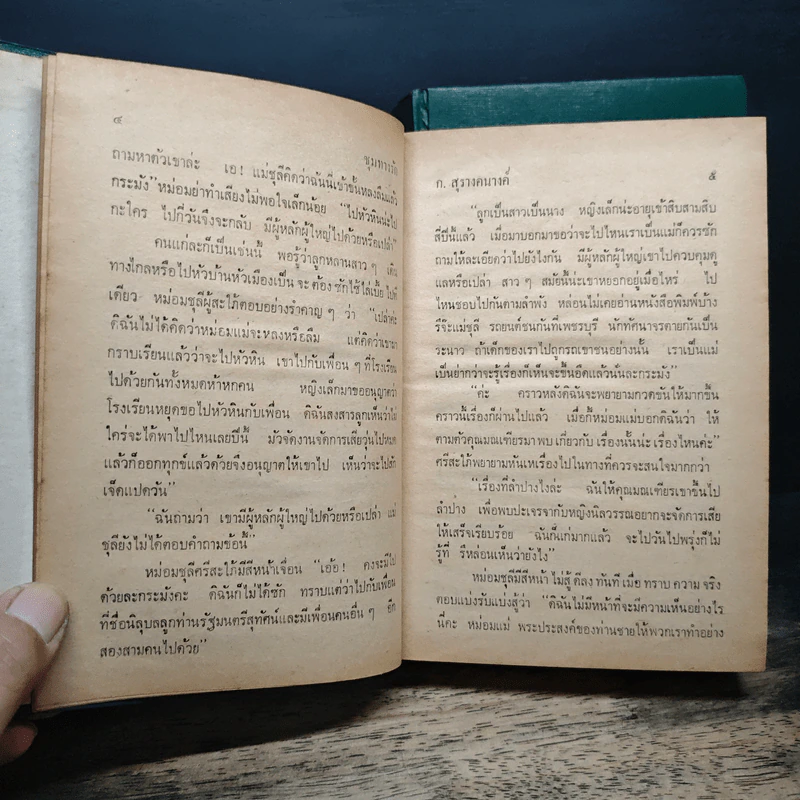 ๔
ชุมทางรัก
ถามหาตัวเขาล่ะ เอ! แม่ชุลีคิดว่าฉันนี่เข้าขั้นหลงลืมแล้ว
กระมัง" หม่อมย่าทำเสียงไม่พอใจเล็กน้อย "ไปหัวหินน่ะไป
กะใคร ไปกี่วันจึงจะกลับ มีผู้หลักผู้ใหญ่ไปด้วยหรือเปล่า"
คนแก่ละก็เป็นเช่นนี้ พอรู้ว่าลูกหลานสาว ๆ เดิน
ทางไกลหรือไปหัวบ้านหัวเมืองเป็น จะต้อง ซักไซ้ ไล่เบี้ย ไปที
เดียว หม่อมชุลีผู้สะใภ้ตอบอย่างรำคาญ ๆ ว่า "เปล่าค่ะ
ดิฉันไม่ได้คิดว่าหม่อมแม่จะหลงหรือลืม แต่คิดว่าเขามา
กราบเรียนแล้วว่าจะไปหัวหิน เขาไปกับเพื่อน ๆ ที่โรงเรียน
ไปด้วยกันทั้งหมดห้าหกคน หญิงเล็กมาขออนุญาตว่า
โรงเรียนหยุดขอไปหัวหินกับเพื่อน ดิฉันสงสารลูกเห็นว่าไม่
ใคร่จะได้พาไปไหนเลยปีนี้ มัวจัดงานจัดการเสียวุ่นไปหมด
แล้วก็ออกทุกข์แล้วด้วยจึงอนุญาตให้เขาไป เห็นว่าจะไปสัก
เจ็ดแปดวัน"
"ฉันถามว่า เขามีผู้หลักผู้ใหญ่ไปด้วยหรือเปล่า แม่
ชุลียังไม่ได้ตอบคำถามข้อนี้"
หม่อมชุลีศรีสะใภ้มีสีหน้าเจื่อน "เอ้อ! คงจะมีไป
ด้วยละกระมังคะ ดิฉันก็ไม่ได้ซัก ทราบแต่ว่าไปกับเพื่อน
ที่ชื่อนิลุบลลูกท่านรัฐมนตรีสุทัศน์และมีเพื่อนคนอื่น ๆ อีก
สองสามคนไปด้วย"
ก. สุรางคนางค์
๕
"ลูกเป็นสาวเป็นนาง หญิงเล็กน่ะอายุเข้าสิบสามสิบ
สี่ปีนี้แล้ว เมื่อมาบอกมาขอว่าจะไปไหนเราเป็นแม่ก็ควรซัก
ถามให้ละเอียดว่าไปยังไงกัน มีผู้หลักผู้ใหญ่เข้าไปควบคุมดู
แลหรือเปล่า สาว ๆ สมัยนี้น่ะเขาหยอกอยู่เมื่อไหร่ ไป
ไหนชอบไปกันตามลำพัง หล่อนไม่เคยอ่านหนังสือพิมพ์บ้าง
รึจ๊ะแม่ชุลี รถยนต์ชนกันที่เพชรบุรี นักทัศนาจรตายกันเป็น
วะนาว ถ้าเด็กของเราไปถูกรถเขาชนอย่างนั้น เราเป็นแม่
เป็นย่ากว่าจะรู้เรื่องก็เห็นจะขึ้นอืดแล้วนั่นละกระมัง"
"ค่ะ คราวหลังดิฉันจะพยายามกวดขันให้มากขึ้น
คราวนี้เรื่องก็ผ่านไปแล้ว เมื่อกี้หม่อมแม่บอกดิฉันว่า ให้
ตามตัวคุณมณเฑียรมาพบ เกี่ยวกับ เรื่องนั้นน่ะ เรื่องไหนคะ"
ศรีสะใภ้พยายามหันเหเรื่องไปในทางที่ควรจะสนใจมากกว่า
"เรื่องที่ลำปางไงล่ะ ฉันให้คุณมณเฑียรเขาขึ้นไป
ลำปาง เพื่อพบปะเจรจากับหญิงนิลวรรณอยากจะจัดการเสีย
ให้เสร็จเรียบร้อย ฉันก็แก่มากแล้ว จะไปวันไปพรุ่งก็ไม่
รู้ที่ รึหล่อนเห็นว่ายังไง"
หม่อมชุลีมีสีหน้า ไม่สู้ ดีลง ทันที เมื่อ ทราบ ความ จริง
ตอบแบ่งรับแบ่งสู้ว่า "ดิฉันไม่มีหน้าที่จะมีความเห็นอย่างไร
นี่คะ หม่อมแม่ พระประสงค์ของท่านชายให้พวกเราทำอย่าง